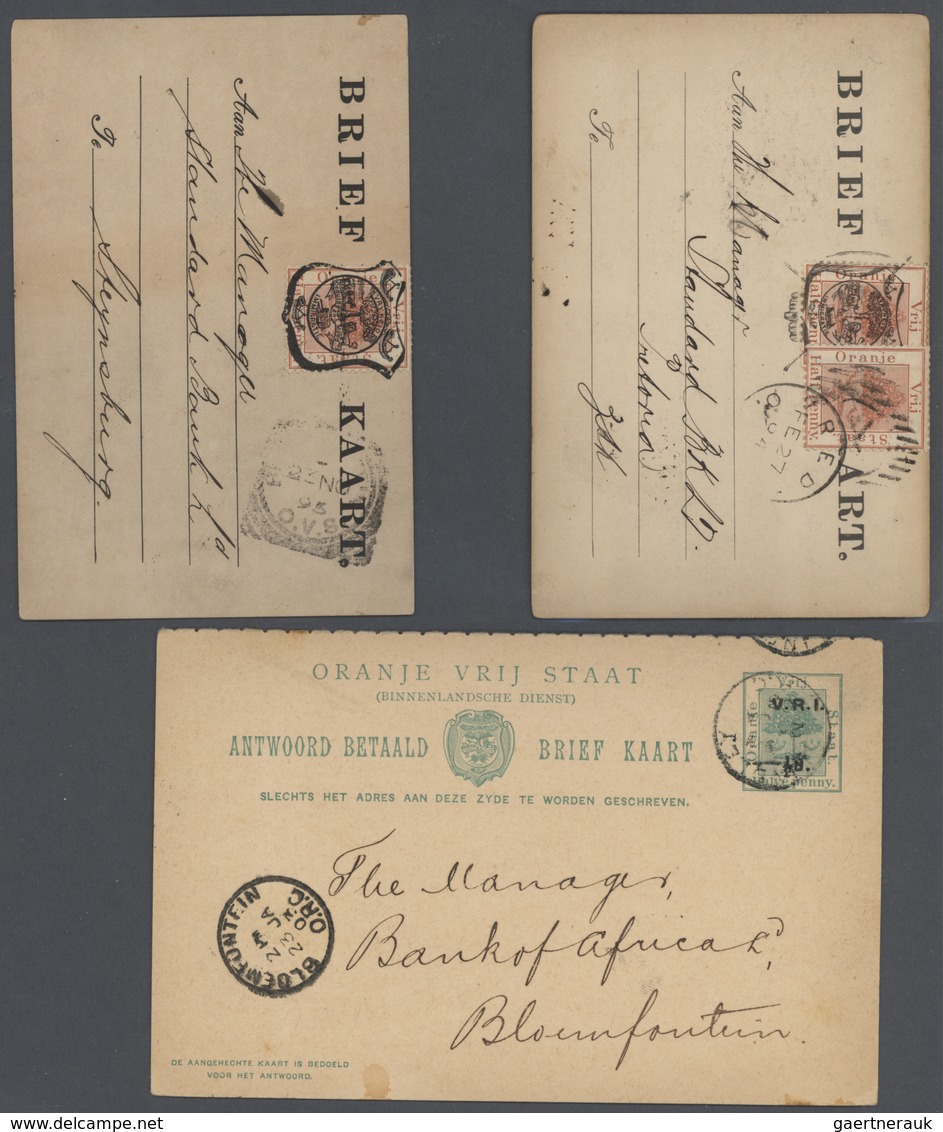 BRIEF KAART.
Aan The Manager
Standard Bank Ld
Te Steynsburg.
Oranje
Vrij
Staat.
23 NO
95
O.V.S
BRIEF ART.
Aan The Manager
Standard Bk Ld.
Te
Oranje
Vrij
Oranje
Vrij
Staat.
Half Penny.
FE 27
94
ORANJE VRIJ STAAT
(BINNENLANDSCHE DIENST)
ANTWOORD BETAALD BRIEF KAART
SLECHTS HET ADRES AAN DEZE ZYDE TE WORDEN GESCHREVEN.
V.R.I.
Oranje
Staat.
Halve penny.
The Manager,
Bank of Africa Ld,
Bloemfontein
BLOEMFONTEIN
O.R.C.
23 JA
DE AANGEHECHTE KAART IS BEDOELD
VOOR HET ANTWOORD.
gaertnerauk @ delcampe.net